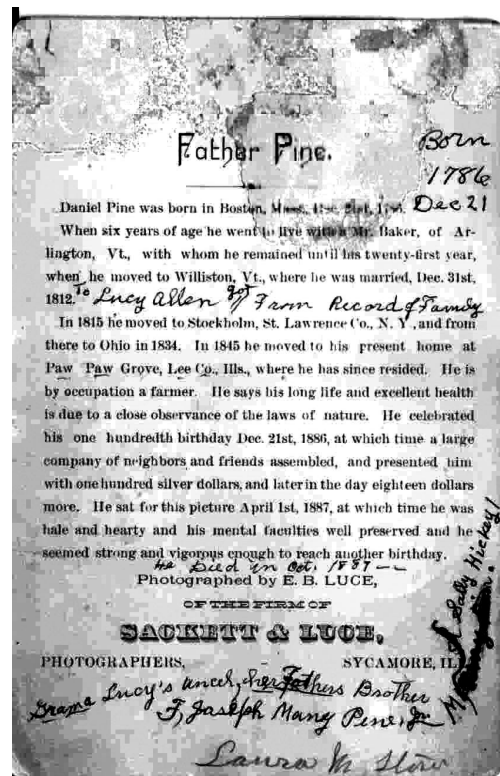 Father Pine.
Born
1786
Dec 21
Daniel Pine was born in Boston, Mass., Dec. 21st, 1786.
When six years of age he went to live with a Mr. Baker, of Ar-
lington, Vt., with whom he remained until his twenty-first year,
when he moved to Williston, Vt., where he was married, Dec. 31st,
1812. To Lucy Allen got From Record of Family
In 1815 he moved to Stockholm, St. Lawrence Co., N. Y, and from
there to Ohio in 1834. In 1845 he moved to his present home at
Paw Paw Grove, Lee Co., Ills., where he has since resided. He is
by occupation a farmer. He says his long life and excellent health
is due to a close observance of the laws of nature. He celebrated
his one hundredth birthday Dec. 21st, 1886, at which time a large
company of neighbors and friends assembled, and presented him
with one hundred silver dollars, and later in the day eighteen dollars
more. He sat for this picture April 1st, 1887, at which time he was
hale and hearty and his mental faculties well preserved and he
seemed strong and vigorous enough to reach another birthday.
He Died in Oct. 1887
Photographed by E. B. LUCE,
OF THE FIRM OF
SACKETT & LUCE,
PHOTOGRAPHERS, SYCAMORE, ILL
Grama Lucy's uncel, her Fathers Brother
F, Joseph Many Pine, Jr
Sally Hickey!
Laura M